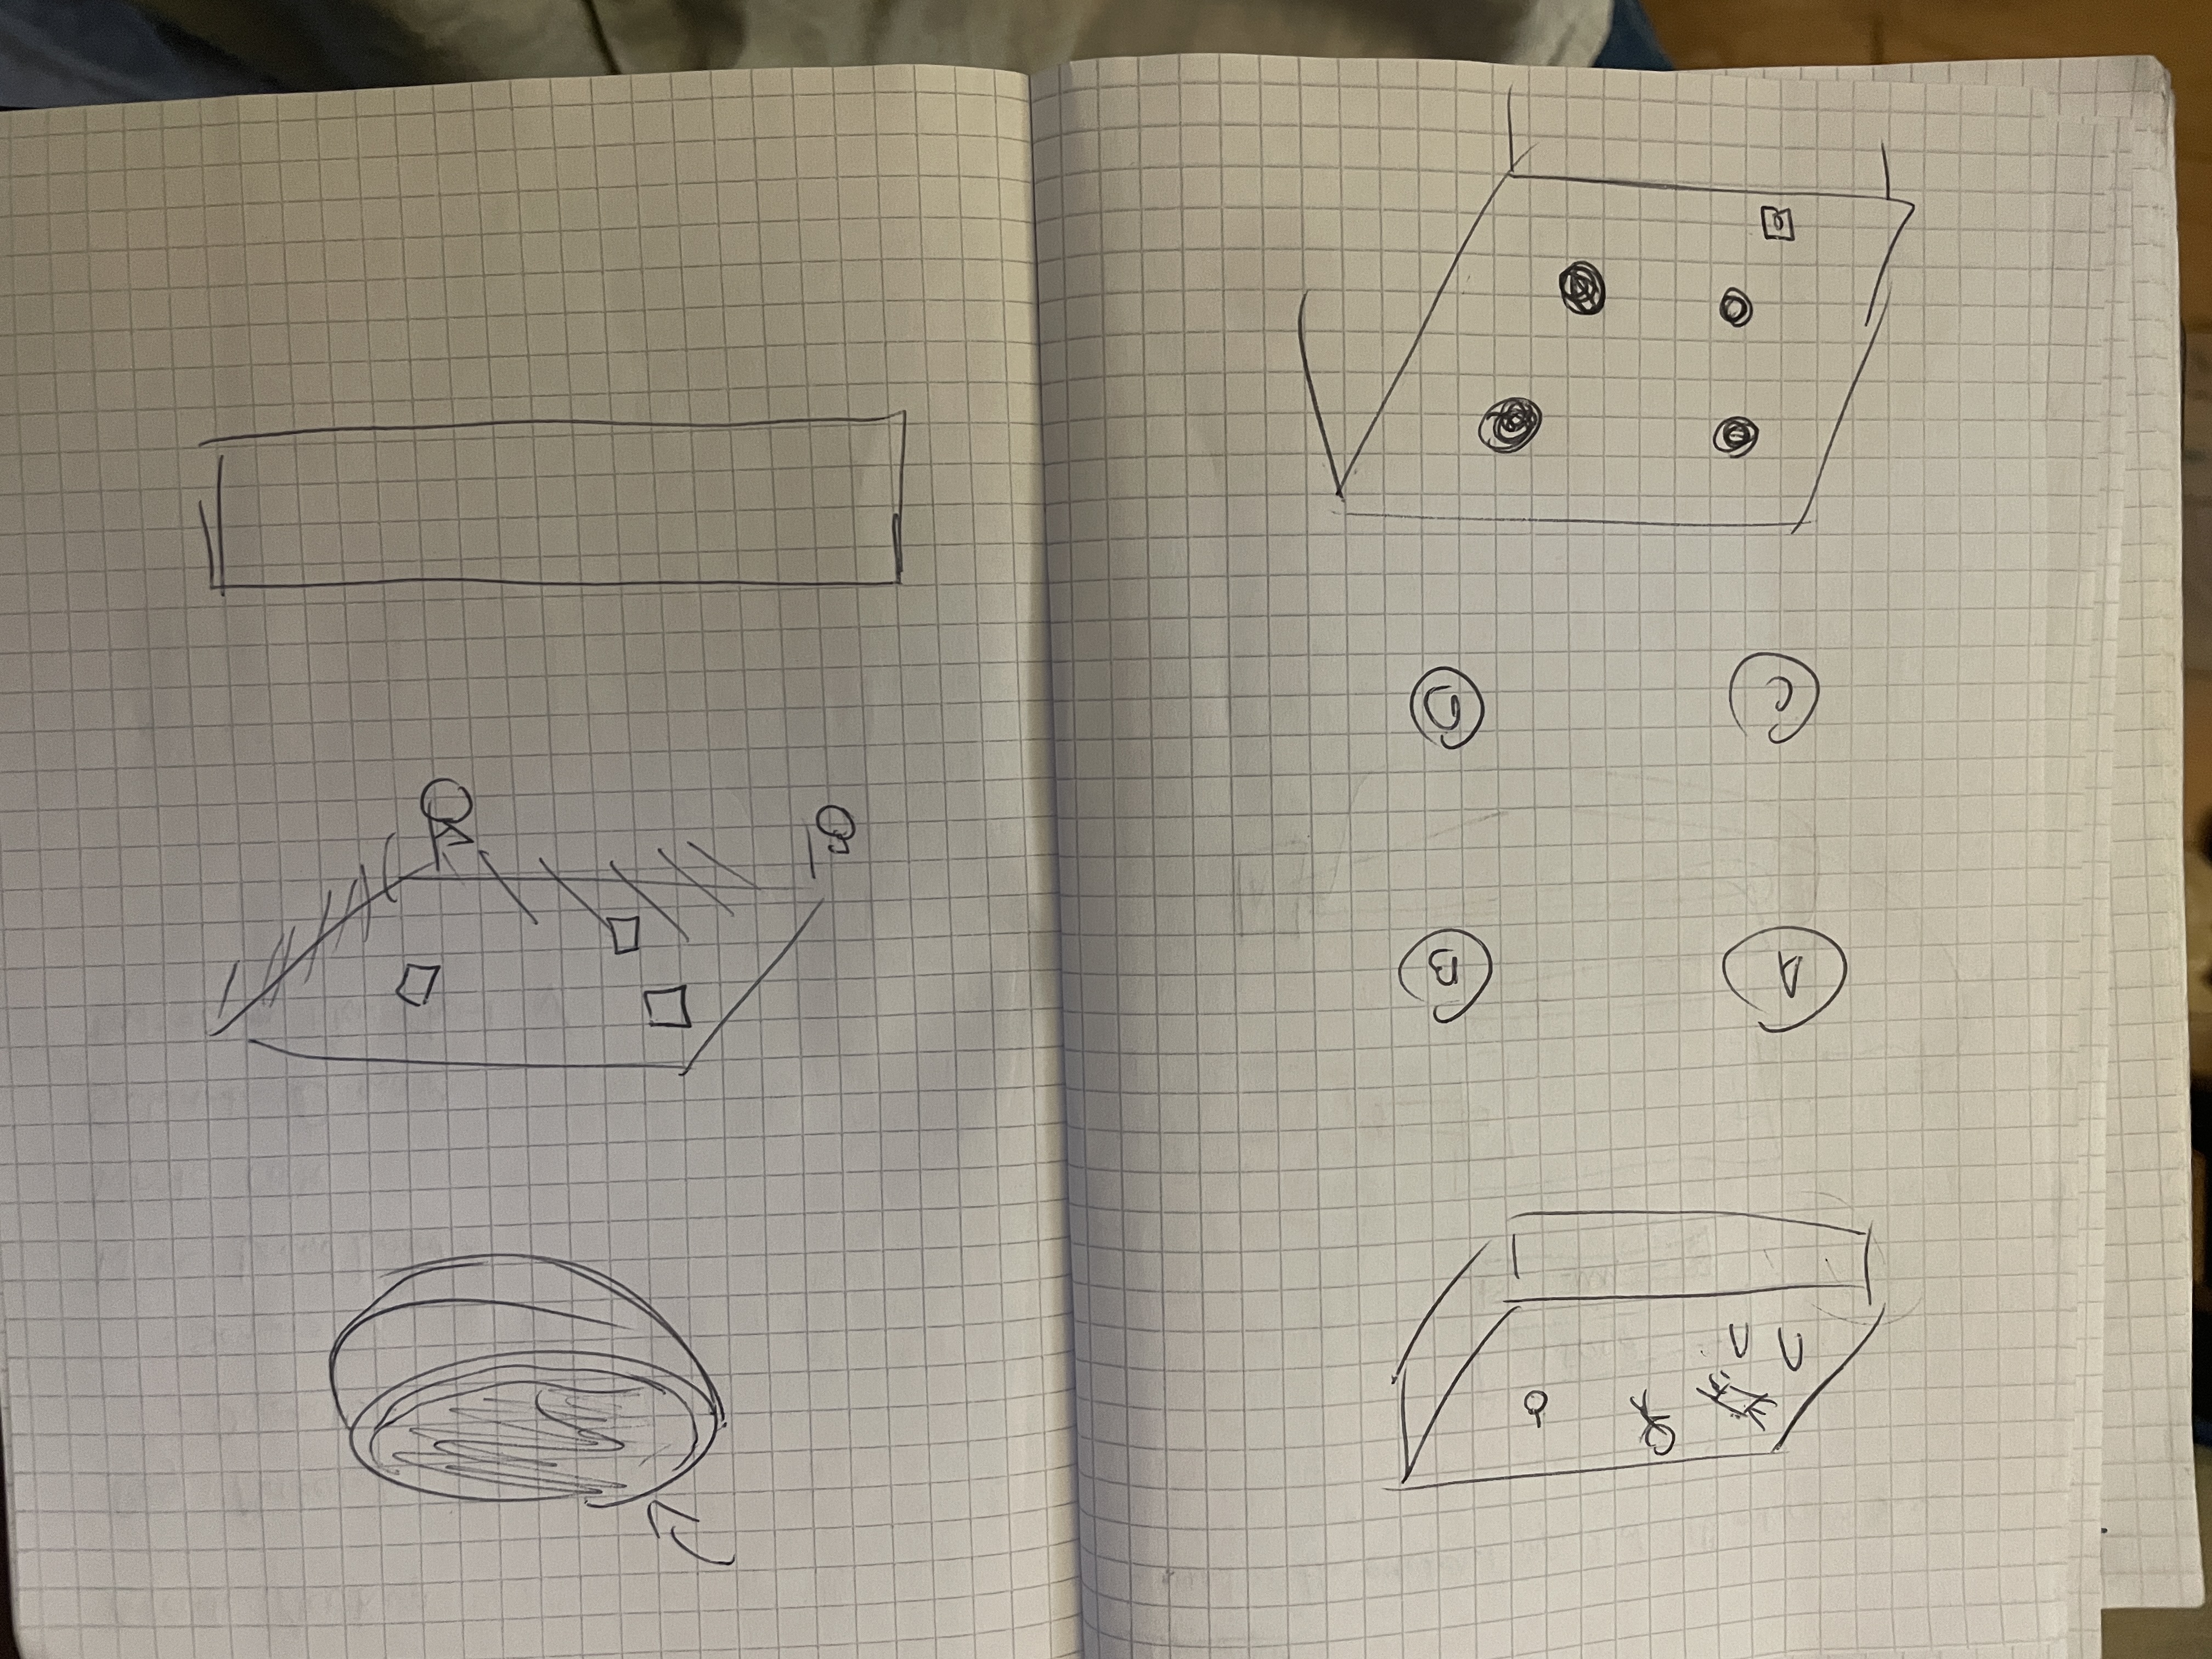 A B
C D